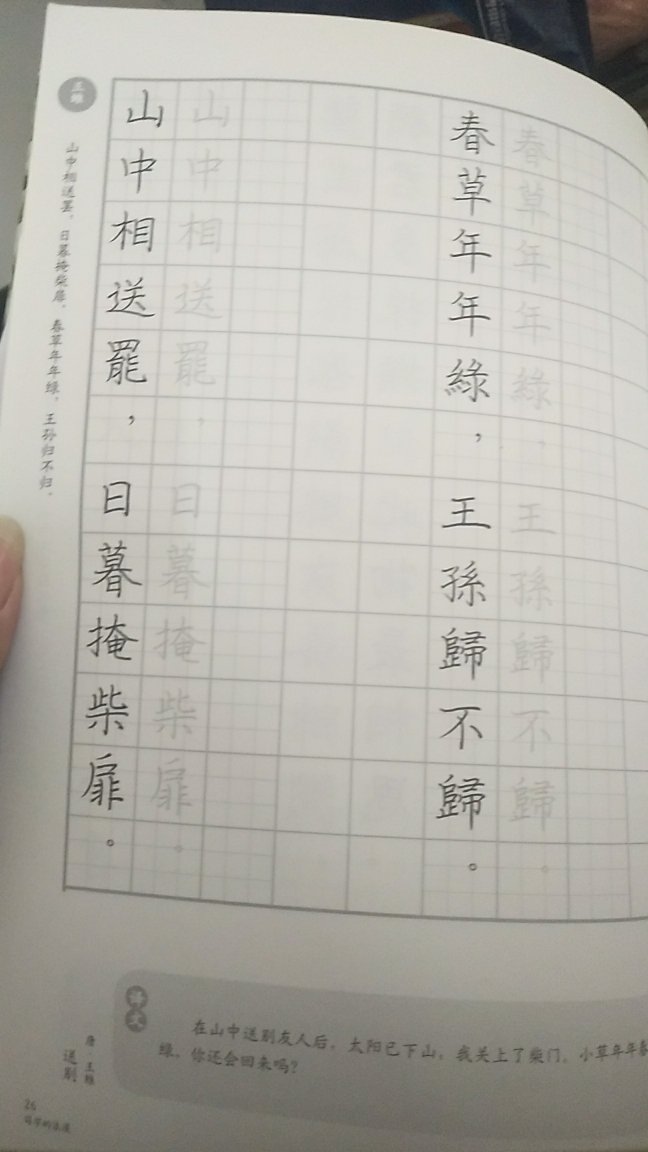 王維
山中相送罢，日暮掩柴扉。春草年年绿，王孙归不归。
山中相送罷，日暮掩柴扉。
山中相送罷，日暮掩柴扉。
春草年年綠，王孫歸不歸。
春草年年綠，王孫歸不歸。
译文
在山中送别友人后，太阳已下山，我关上了柴门。小草年年春
绿，你还会回来吗？
唐·王维
送别
26